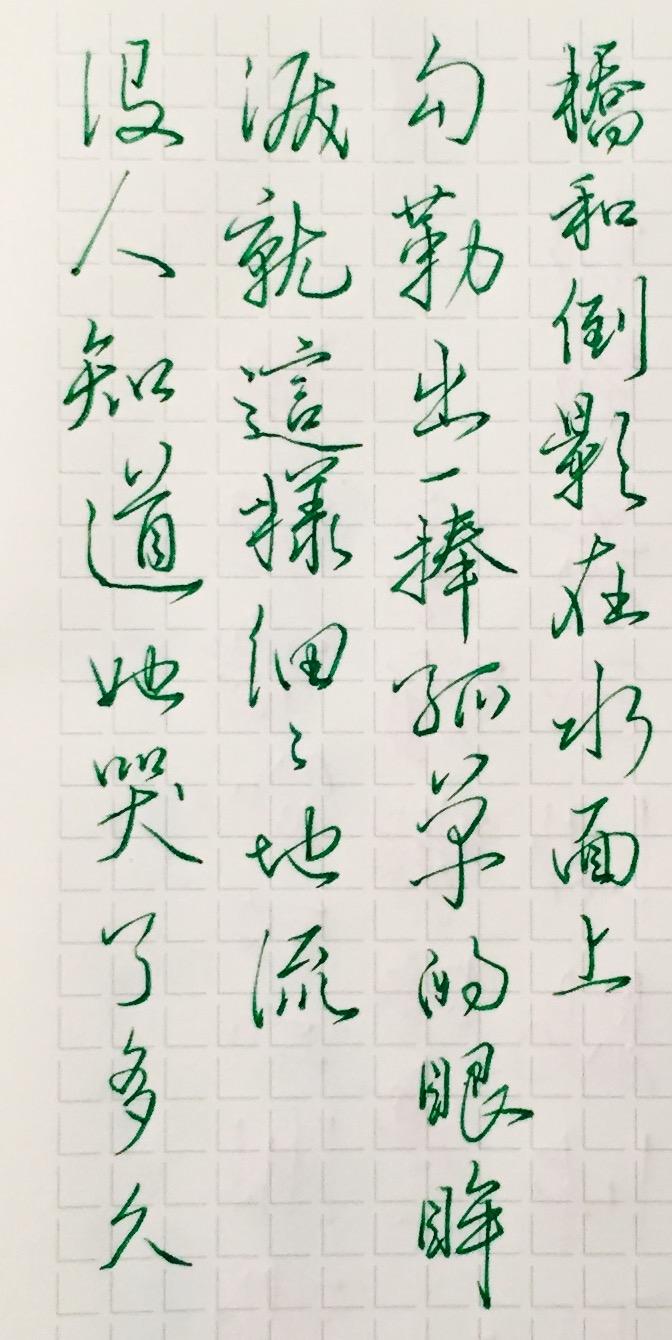 橋和倒影在水面上
勾勒出一捧孤单的眼眸
淚就這樣細々地流
没人知道她哭了多久